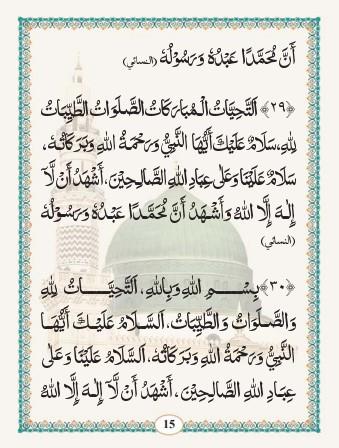 أَنَّ مُحَمَّدًا عَبْدُهٗ وَرَسُوْلُهٗ (النسائي)
﴿٢٩﴾ اَلتَّحِيَّاتُ الْمُبَارَكَاتُ الصَّلَوَاتُ الطَّيِّبَاتُ
لِلّٰهِ، سَلَامٌ عَلَيْكَ أَيُّهَا النَّبِيُّ وَرَحْمَةُ اللهِ وَبَرَكَاتُهٗ،
سَلَامٌ عَلَيْنَا وَعَلٰى عِبَادِ اللهِ الصَّالِحِيْنَ، أَشْهَدُ أَنْ لَّآ
إِلٰـهَ إِلَّا اللهُ وَأَشْهَدُ أَنَّ مُحَمَّدًا عَبْدُهٗ وَرَسُوْلُهٗ
(النسائي)
﴿٣٠﴾ بِسْــمِ اللهِ وَبِاللهِ، اَلتَّحِيَّــاتُ لِلّٰهِ
وَالصَّلَوَاتُ وَالطَّيِّبَاتُ، اَلسَّلَامُ عَلَيْـكَ أَيُّهَـا
النَّبِيُّ وَرَحْمَةُ اللهِ وَبَرَكَاتُهٗ، اَلسَّلَامُ عَلَيْنَا وَعَلٰى
عِبَادِ اللهِ الصَّالِحِيْنَ، أَشْهَدُ أَنْ لَّآ إِلٰـهَ إِلَّا اللهُ
15